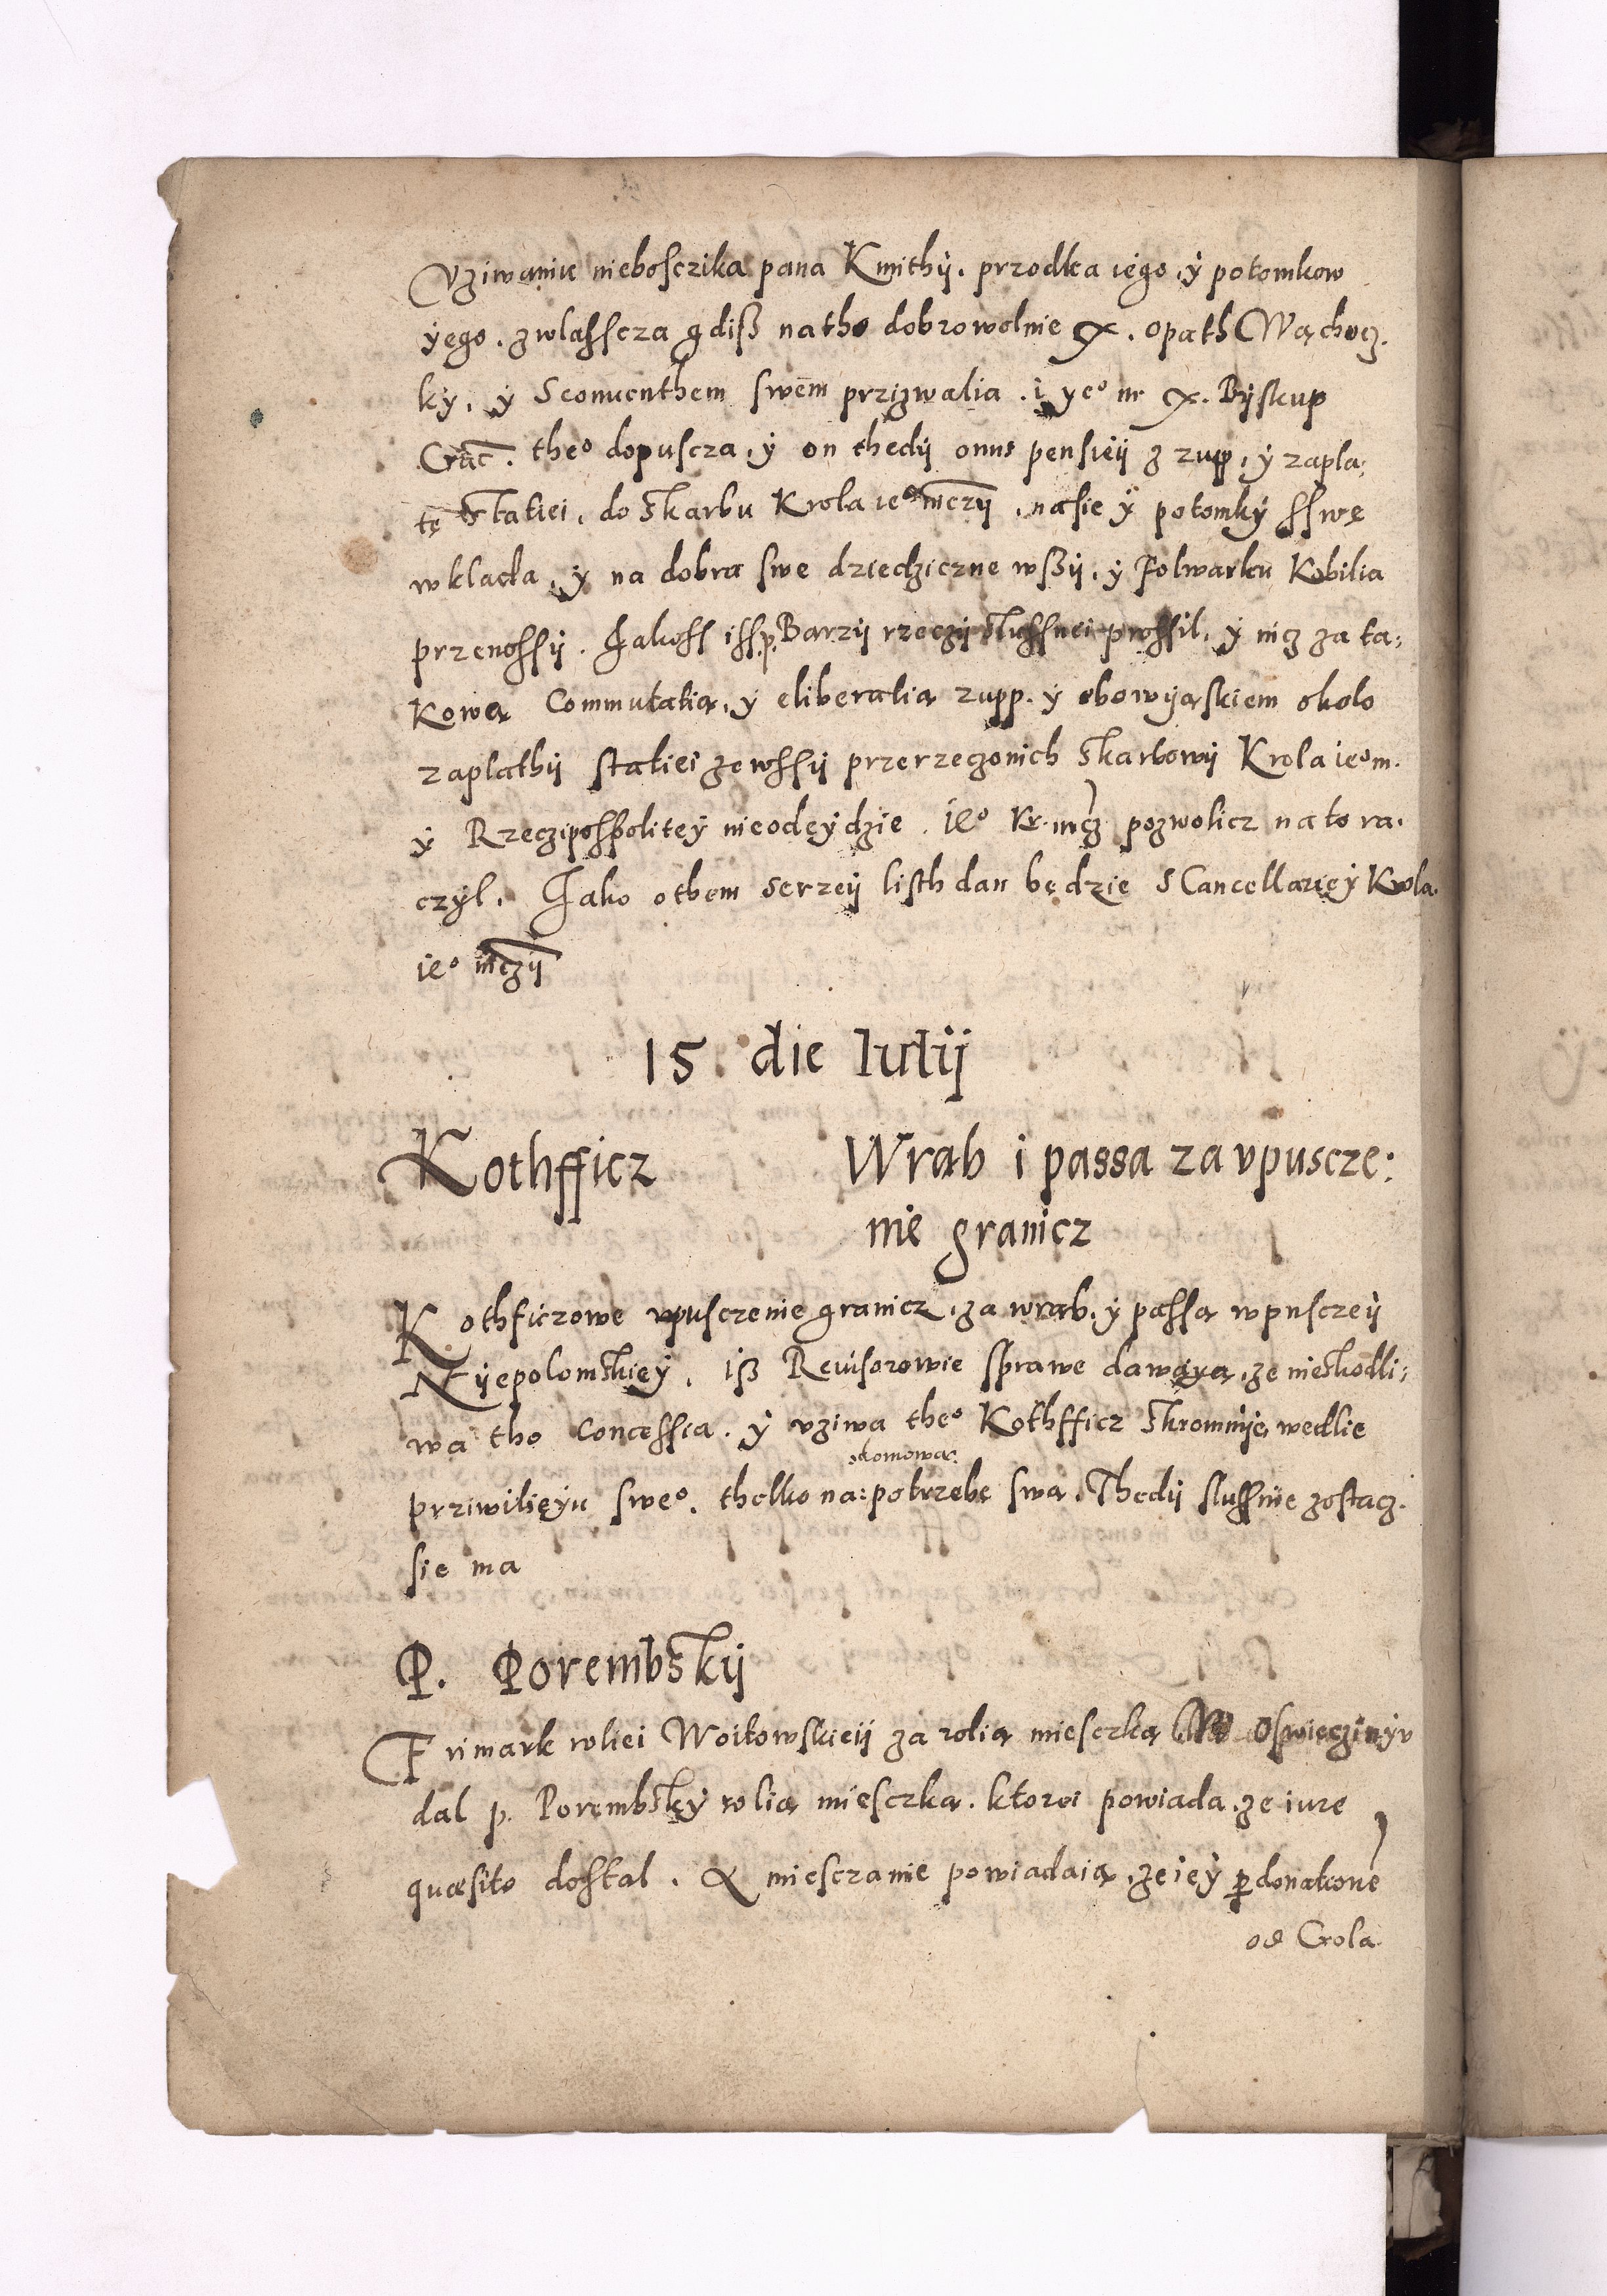 Vziwaniu niebosczika pana Kmithÿ. przodka iego, ÿ potomkow
ÿego. zwlasscza gdiß natho dobrowolnie X. opath Wąchocz-
kÿ, ÿ Sconuenthem swem przizwalia. i ye° m X. Bÿskup
Crac. the° dopuscza, ÿ on thedÿ onus pensieÿ z zupp, ÿ zapla-
tę statiei, do skarbu Krola ie° mczÿ, nasie ÿ potomkÿ sswę
wklada, ÿ na dobra swe dziedziczne wßÿ, ÿ Folwarku Kobilia
przenossÿ. Jakoss iss p. Barzÿ rzeczÿ slussnei prossil, ÿ nicz za ta-
kową Commutatią, ÿ eliberatią zupp. ÿ obowÿąskiem okolo
zaplathÿ statiei zewssÿ przerzeczonich skarbowÿ Krola ie°m.
ÿ Rzeczipospolitey nieodeydzie. Ie° Kr. mcz pozwolicz nato ra-
czÿl. Jako othem serzeÿ listh dan będzie S Cancellarieÿ Krola
ie° mczÿ
15 die Iulij
Kothfficz Wrab i passa za vpuscze:
nie granicz
Kothficzowe vpusczenie granicz, za wrab, ÿ passą wpusczeÿ
Nÿepolomskieÿ, iß Reuisorowie sprawe dawaÿą, ze nieskodli:
wa tho Concessia. ÿ vziwa the° Kothfficz skromnÿe, wedlie
domową
prziwilieÿu swe°. thelko na: potrzebę swą, Thedÿ slussnie zostacz
sie ma
P. Porembskij
Frimark roliei Woitowskieÿ za rolią miesczką Oswieczimÿv
dal p. Porembskÿ rolią miesczką. ktorei powiada, ze iure
quæsito dostal. A miesczanie powiadaią, ze ieÿ per donatione
od Crola